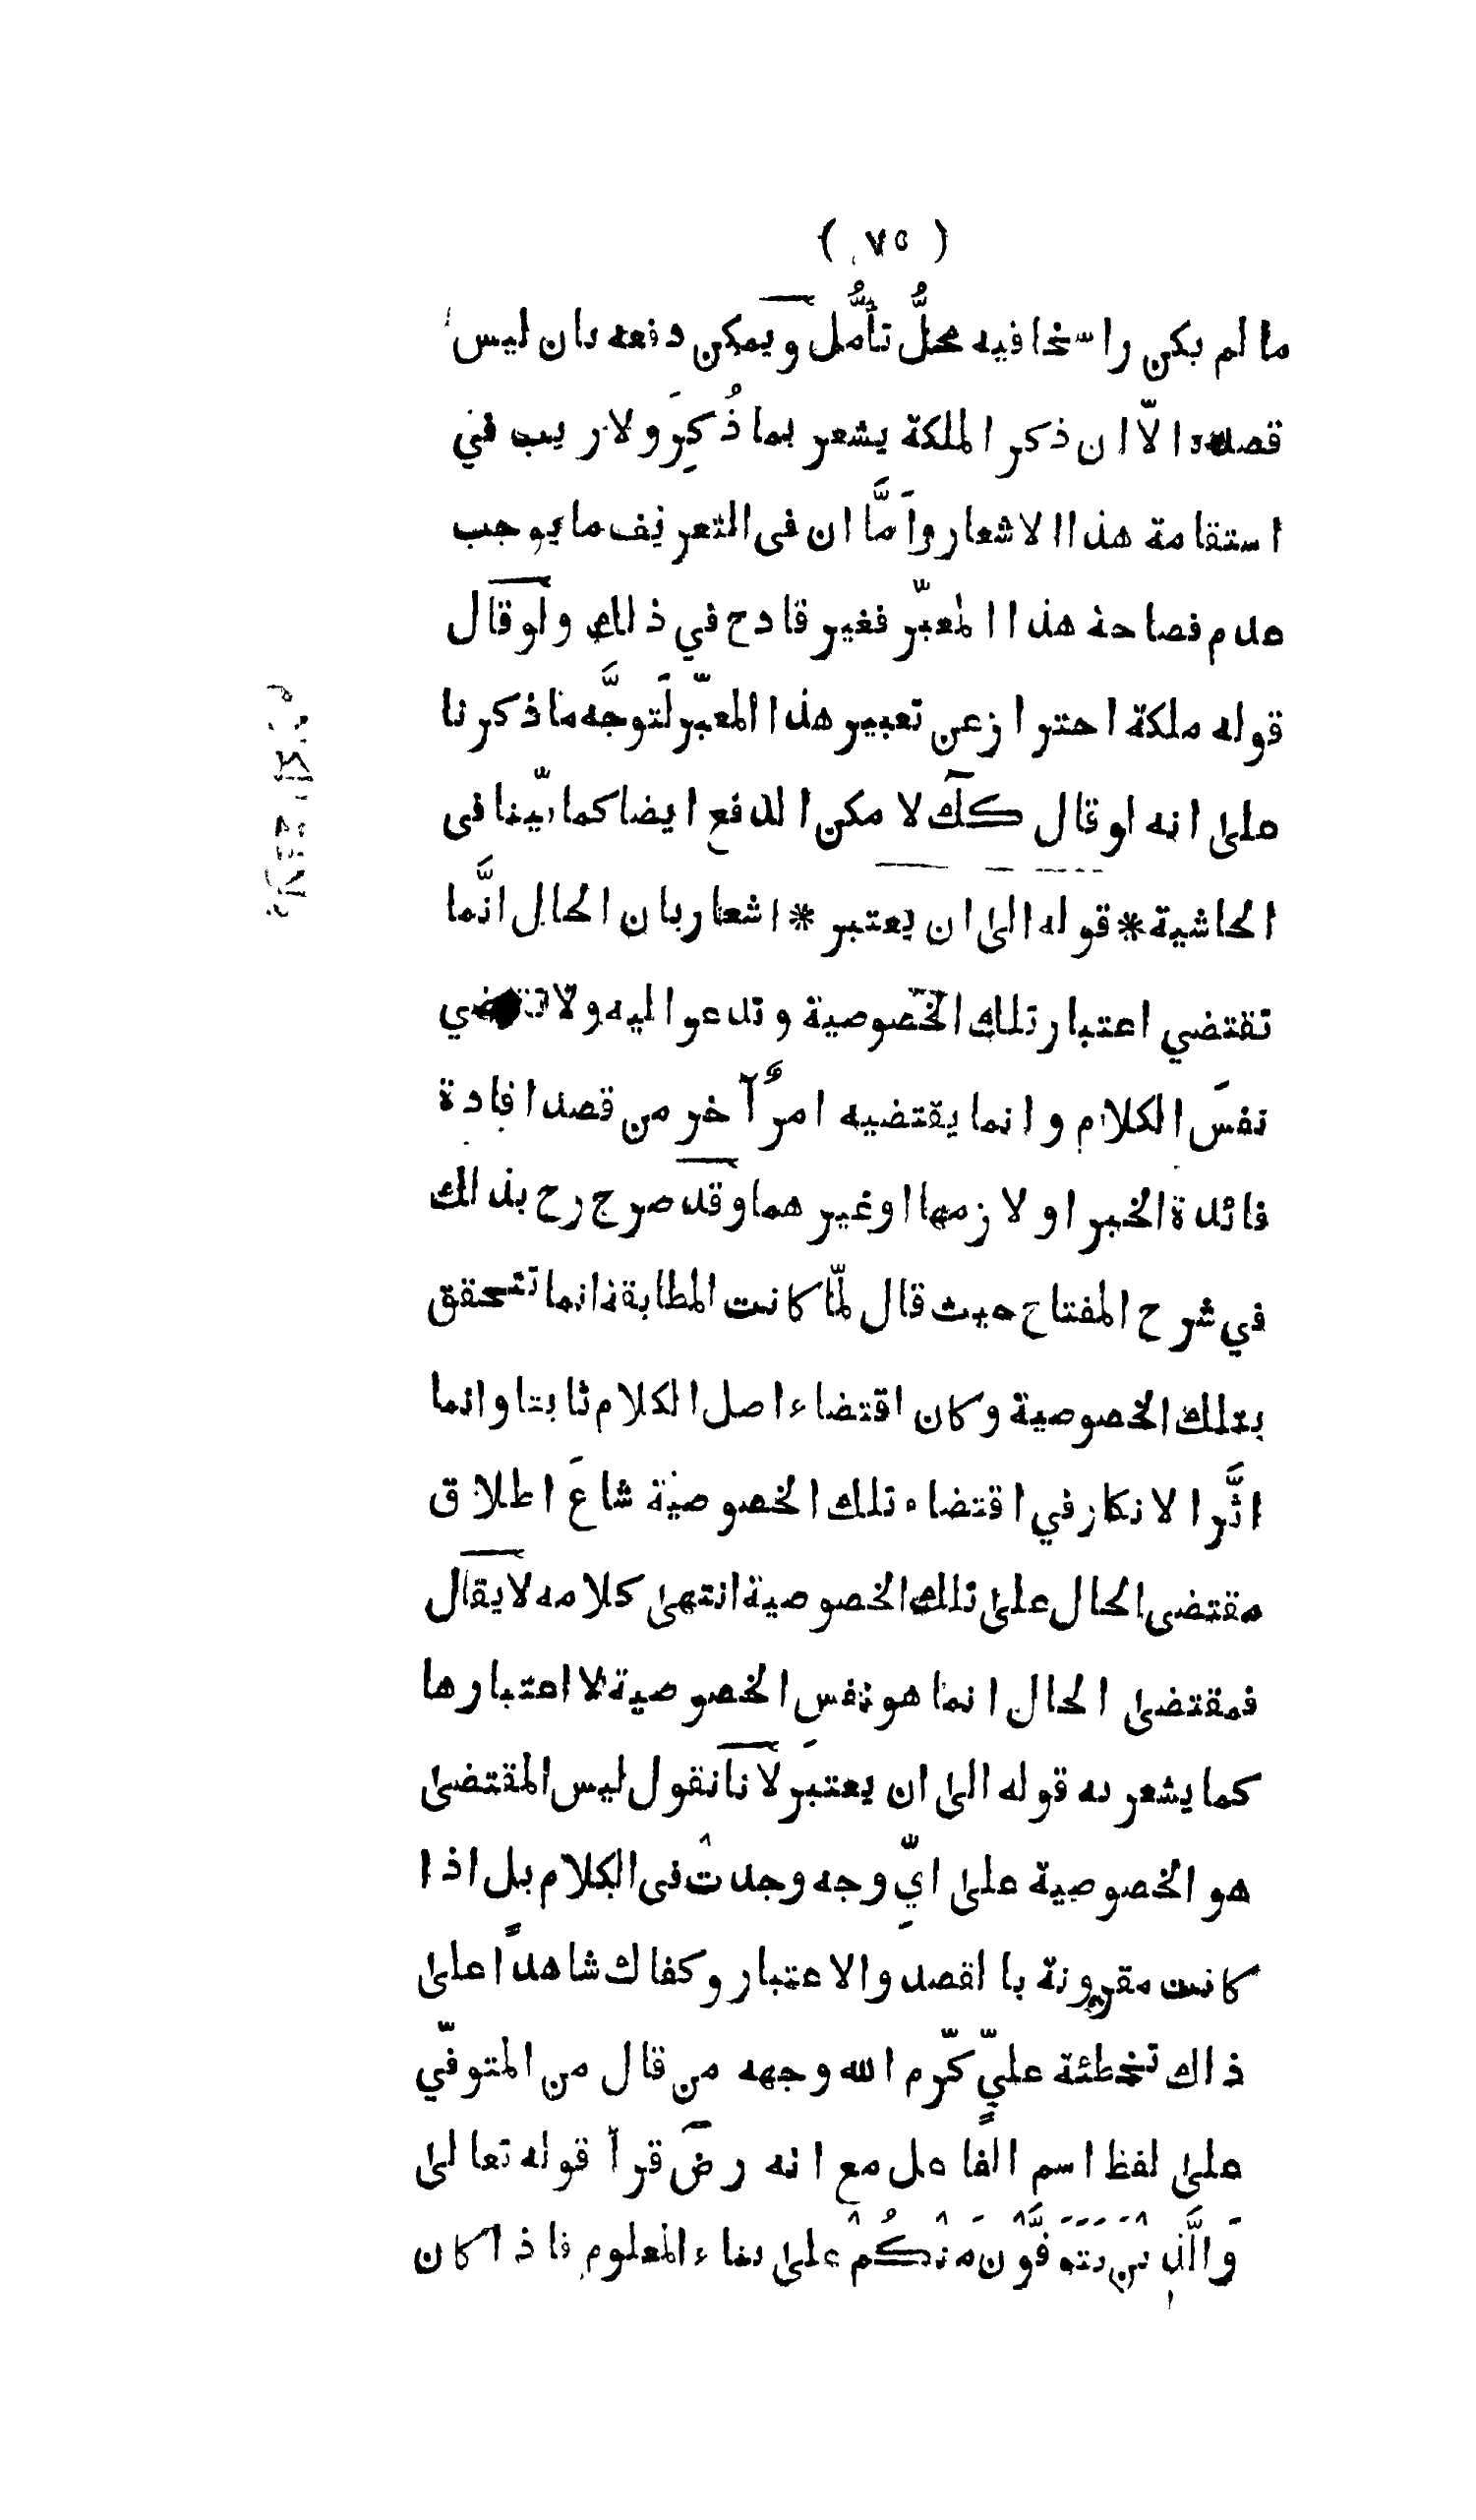 ( ٧٥ )
ما لم يكن راسخا فيه محلُّ تأمُّل ويمكن دفعه بان ليس
قصده الاّ ان ذكر الملكة يشعر بما ذُكِرَ ولا ريب في
استقامة هذا الاشعار واَمَّا ان فى التعريف ما يوجب
عدم فصاحة هذا المعبّر فغير قادح في ذلك ولو قال
قوله ملكة احتراز عن تعبير هذا المعبّر لَتوجَّه ما ذكرنا
على انه لو قال كك لا مكن الدفع ايضا كما بيّنا فى
الحاشية * قوله الى ان يعتبر * اشعار بان الحال انَّما
تقتضي اعتبار تلك الخصوصية وتدعو اليه ولا تقتضي
نفسَ الكلام وانما يقتضيه امرٌ آخر من قصد افادة
فائدة الخبر او لازمها او غير هما وقد صرح رح بذلك
في شرح المفتاح حيث قال لمّا كانت المطابقة انما تتحقق
بتلك الخصوصية وكان اقتضاء اصل الكلام ثابتا وانما
اثَّر الانكار في اقتضاء تلك الخصوصية شاعَ اطلاق
مقتضى الحال على تلك الخصوصية انتهى كلامه لا يقال
فمقتضى الحال انما هو نفسِ الخصوصية لا اعتبارها
كما يشعر به قوله الى ان يعتبر لانا نقول ليس المقتضى
هو الخصوصية على ايِّ وجه وجدتْ فى الكلام بل اذا
كانت مقرونة بالقصد والاعتبار وكفاك شاهداً على
ذاك تخطئة عليٍّ كرّم الله وجهه من قال من المتوفّي
على لفظ اسم الفاعل مع انه رض قرأ قوله تعالى
وَالَّذِينَ يَتَوَفَّوْنَ مِنْكُمْ على بناء المعلوم فاذا كان